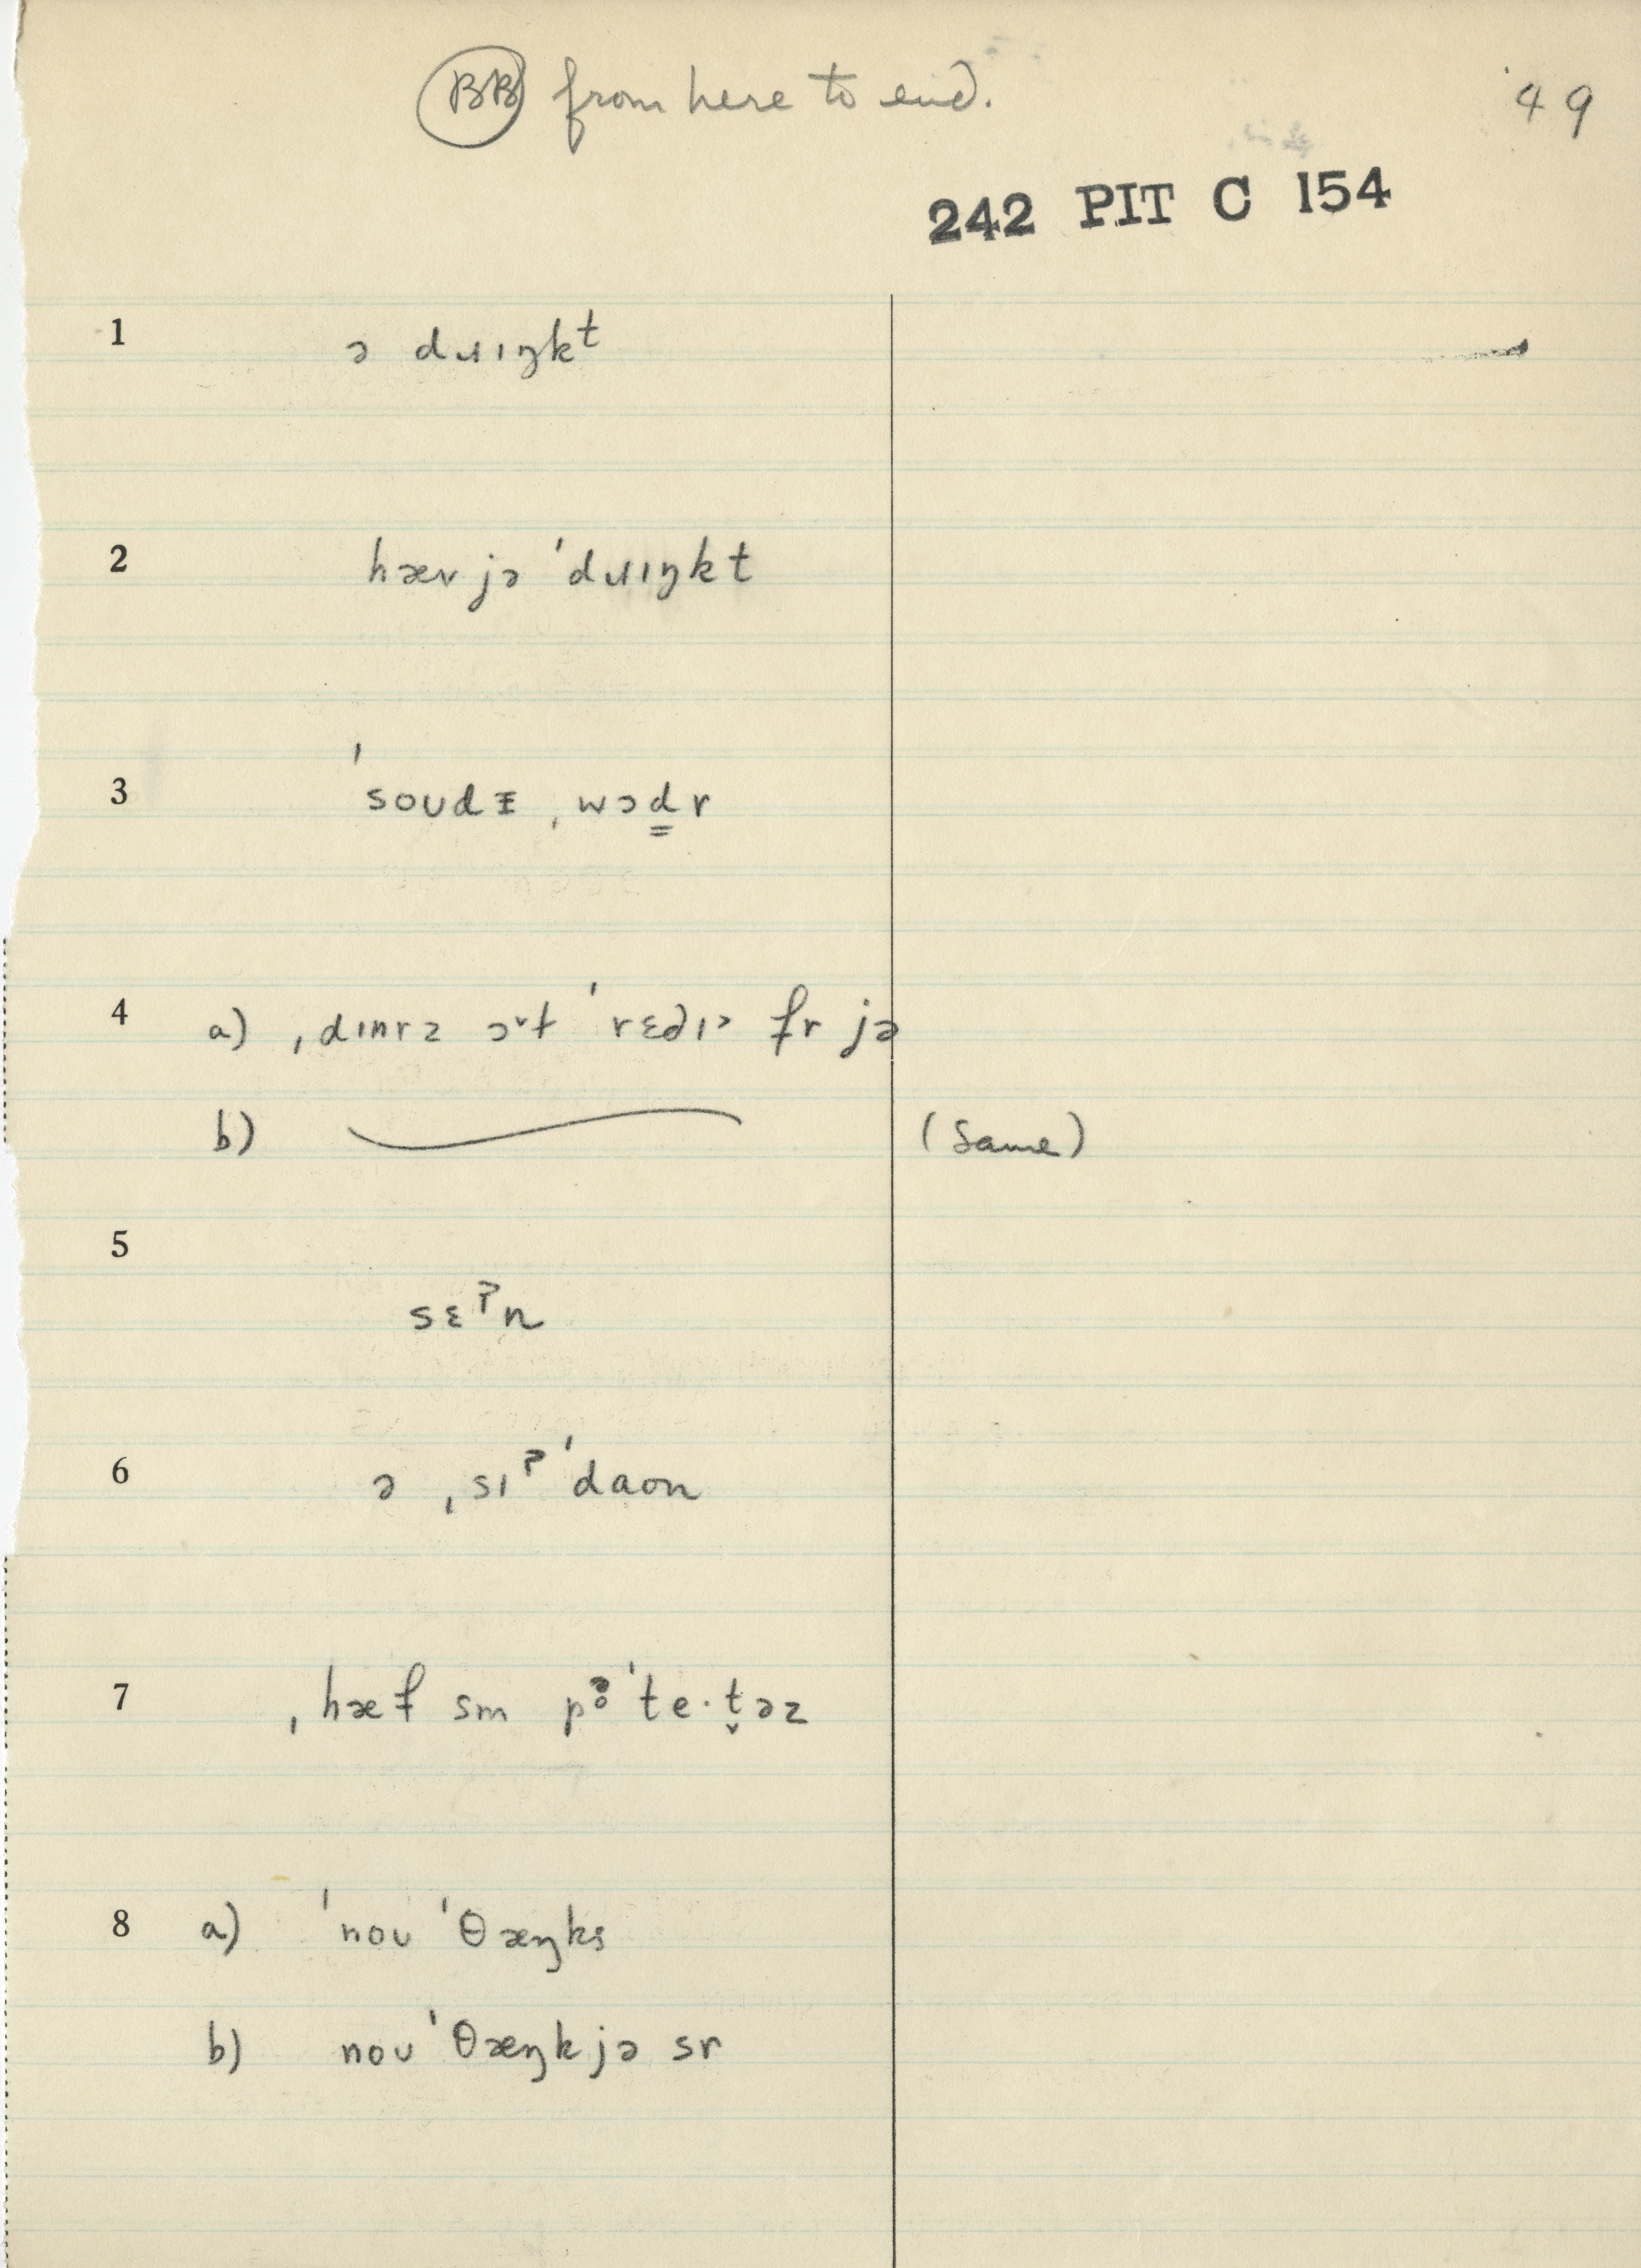 BB from here to end.
49
242 PIT C 154
1 ə dɹɪŋkᵗ
2 hæv jə ˈdɹɪŋkt
3 ˈsoudɪ ˌwɔd̳r
4 a) ˌdɪnrz ɔᵛt ˈrɛdɪ fr jə
b) (Same)
5
sɛˀn
6 ə ˌsɪˀ ˈdaon
7 ˌhæf sm pə̥ˈte·t̬əz
8 a) ˈnou ˈθæŋks
b) nou ˈθæŋk jə sr